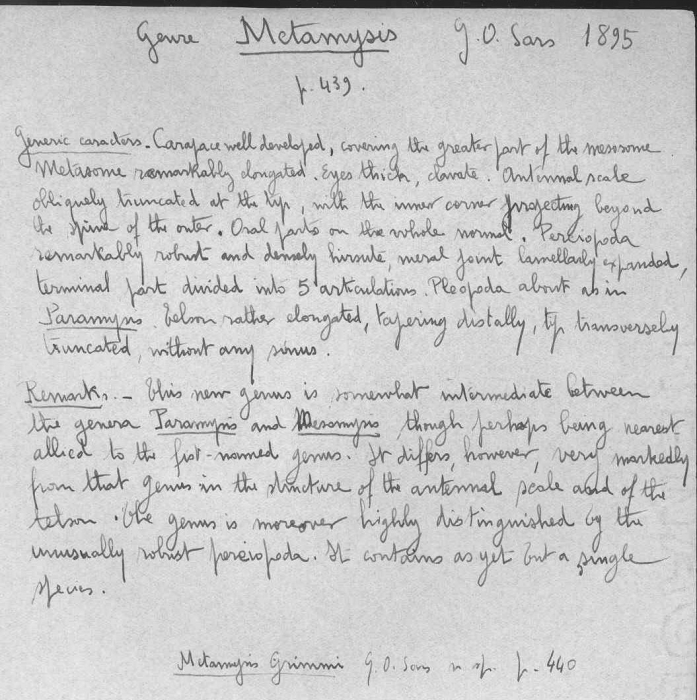 Genre Metamysis G.O. Sars 1895
p. 439.
Generic caracters. - Carapace well developed, covering the greater part of the mesosome
Metasome remarkably elongated. Eyes thick, clavate. Antennal scale
obliquely truncated at the tip, with the inner corner projecting beyond
the spine of the outer. Oral parts on the whole normal. Pereiopoda
remarkably robust and densely hirsute, meral joint lamellarly expanded,
terminal part divided into 5 articulations. Pleopoda about as in
Paramysis. Telson rather elongated, tapering distally, tip transversely
truncated, without any sinus.
Remarks. - This new genus is somewhat intermediate between
the genera Paramysis and Mesomysis though perhaps being nearest
allied to the first-named genus. It differs, however, very markedly
from that genus in the structure of the antennal scale and of the
telson. The genus is moreover highly distinguished by the
unusually robust pereiopoda. It contains as yet but a single
species.
Metamysis Grimmi G.O. Sars n. sp. p. 440